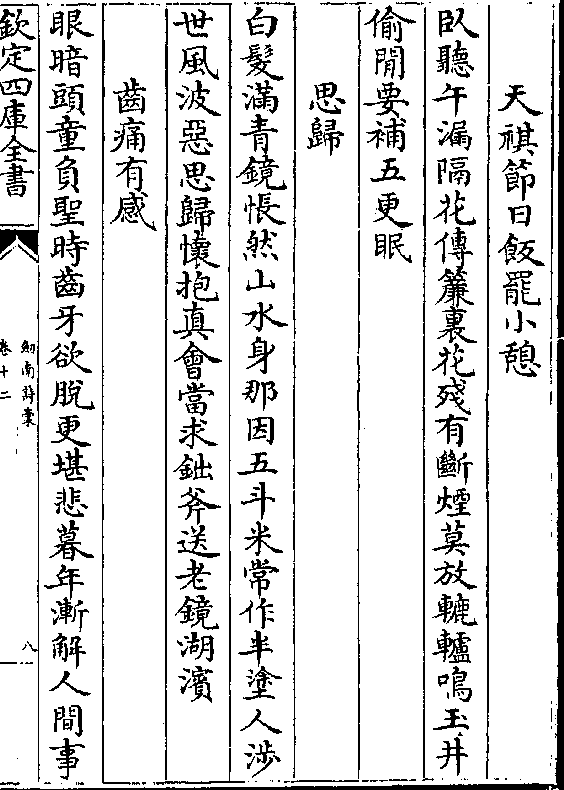 天祺節日飯罷小憩
臥聽午漏隔花傳簾裏花殘有斷煙莫放轆轤鳴玉井
偷閒要補五更眠
思歸
白髮滿青鏡悵然山水身那因五斗米常作半塗人涉
世風波惡思歸懷抱真會當求鈯斧送老鏡湖濱
齒痛有感
眼暗頭童負聖時齒牙欲脫更堪悲暮年漸解人間事
欽定四庫全書
劒南詩稾
卷十二
八